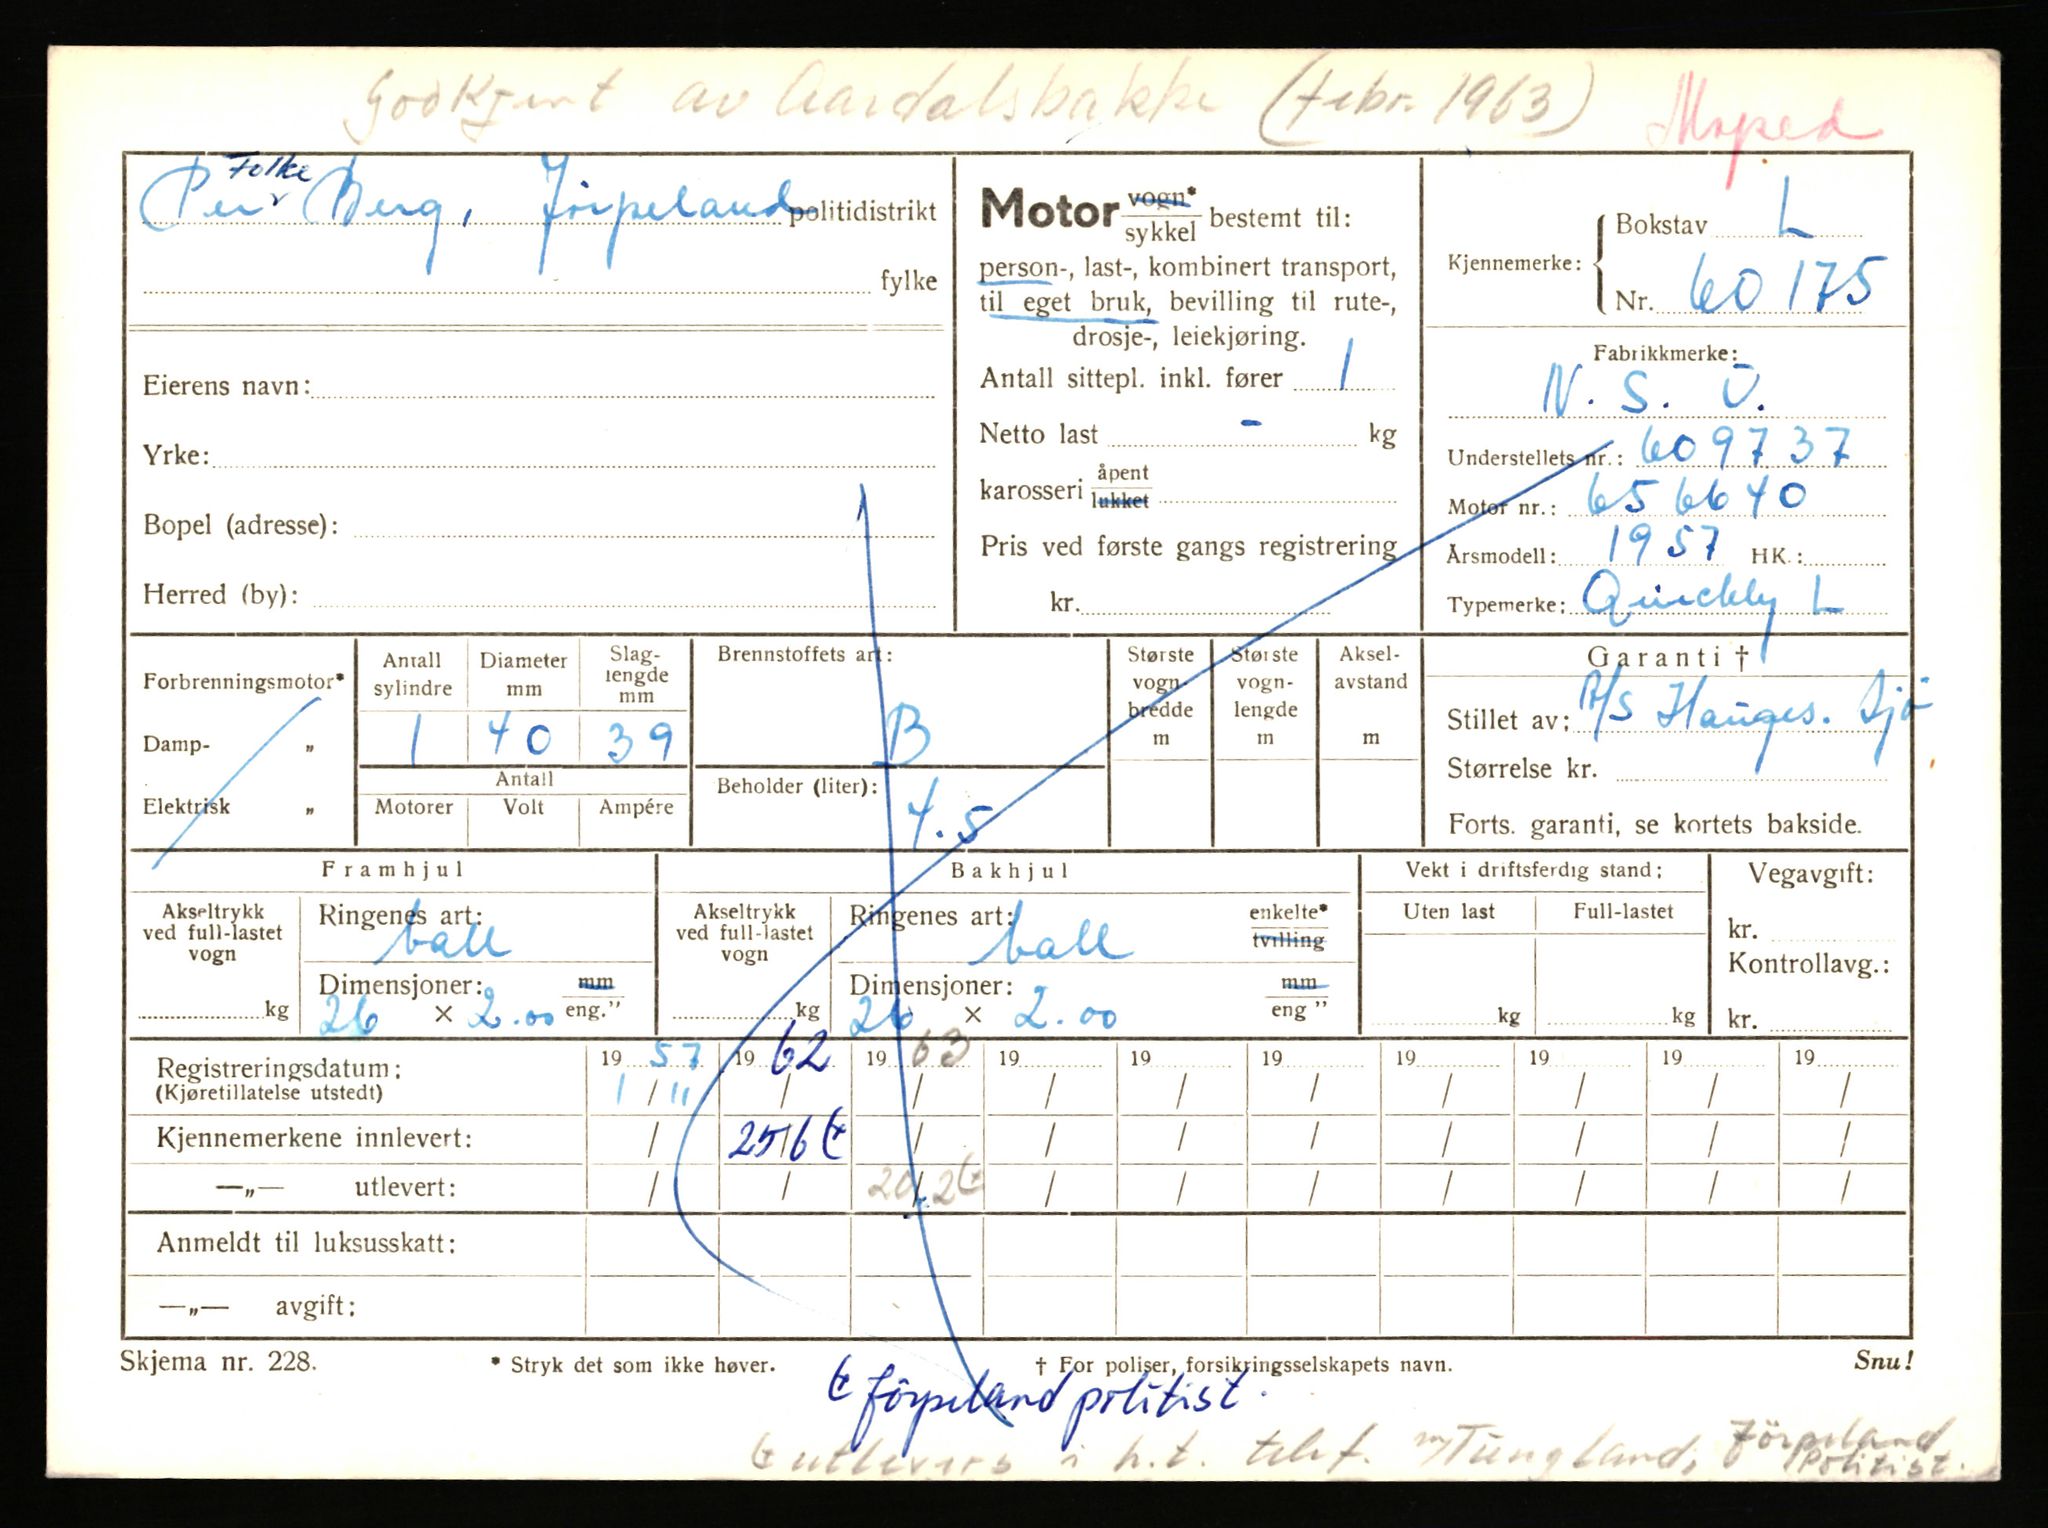 Godkjent av Aardalsbakke (febr. 1963) Moped
Folke
Per Berg, Jörpeland politidistrikt
fylke
Eierens navn:
Yrke:
Bopel (adresse):
Herred (by):
Motor vogn*
sykkel bestemt til:
person-, last-, kombinert transport,
til eget bruk, bevilling til rute-,
drosje-, leiekjøring.
Antall sittepl. inkl. fører 1
Netto last - kg
karosseri åpent
lukket
Pris ved første gangs registrering
kr.
Kjennemerke: Bokstav L
Nr. 60175
Fabrikkmerke:
N. S. U.
Understellets nr.: 609737
Motor nr.: 656640
Årsmodell: 1957 HK.:
Typemerke: Quickly L
Forbrenningsmotor*
Damp- „
Elektrisk „
Antall sylindre
Diameter mm
Slaglengde mm
1 40 39
Antall
Motorer Volt Ampére
Brennstoffets art:
B
Beholder (liter):
4.5
Største vogn-bredde m
Største vogn-lengde m
Aksel-avstand m
Garanti †
Stillet av: A/S Hauges. Sjö
Størrelse kr.
Forts. garanti, se kortets bakside.
Framhjul
Akseltrykk
ved full-lastet
vogn
kg
Ringenes art:
ball
Dimensjoner: mm
26 × 2.00 eng.”
Bakhjul
Akseltrykk
ved full-lastet
vogn
kg
Ringenes art: enkelte*
ball tvilling
Dimensjoner: mm
26 × 2.00 eng”
Vekt i driftsferdig stand:
Uten last Full-lastet
kg kg
Vegavgift:
kr.
Kontrollavg.:
kr.
Registreringsdatum: 19 57 19 62 19 63 19 19 19 19 19 19 19
(Kjøretillatelse utstedt) 1 / 11 / / / / / / / / /
Kjennemerkene innlevert: / 25/6 / / / / / / / /
—„— utlevert: / / 20/2 / / / / / / /
Anmeldt til luksusskatt:
—„— avgift:
Skjema nr. 228. * Stryk det som ikke høver. † For poliser, forsikringsselskapets navn. Snu!
Jörpeland politist.
utlevers i h.t. telef. m/Tungland, Jörpeland
Politist.